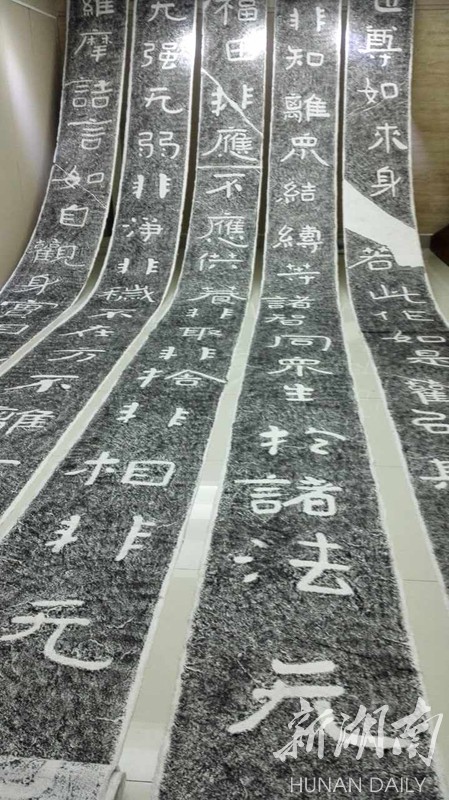 維摩詰言如自觀身實
无强无弱非淨非穢不在方不離
福田非應不應供養非取非捨非相非无
非知離眾結縛等諸智同眾生於諸法无
尊如來身若此作如是觀名其
新湖南
HUNAN DAILY